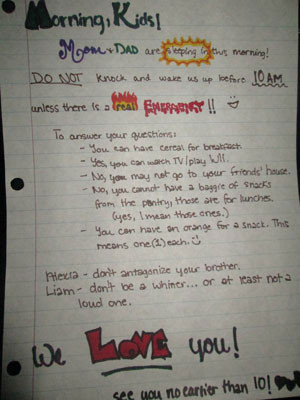 Morning, Kids!
Mom & DAD are sleeping in this morning!
DO NOT knock and wake us up before 10AM
unless there is a real EMERGENCY!!
To answer your questions:
- You can have cereal for breakfast
- Yes, you can watch TV/play Wii.
- No, you may not go to your friends' house.
- No, you cannot have a baggie of snacks
from the pantry, those are for lunches.
(yes, I mean those ones.)
- You can have an orange for a snack. This
means one (1) each.
Alexia - don't antagonize your brother.
Liam - don't be a whiner... or at least not a
loud one.
We LOVE you!
see you no earlier than 10!